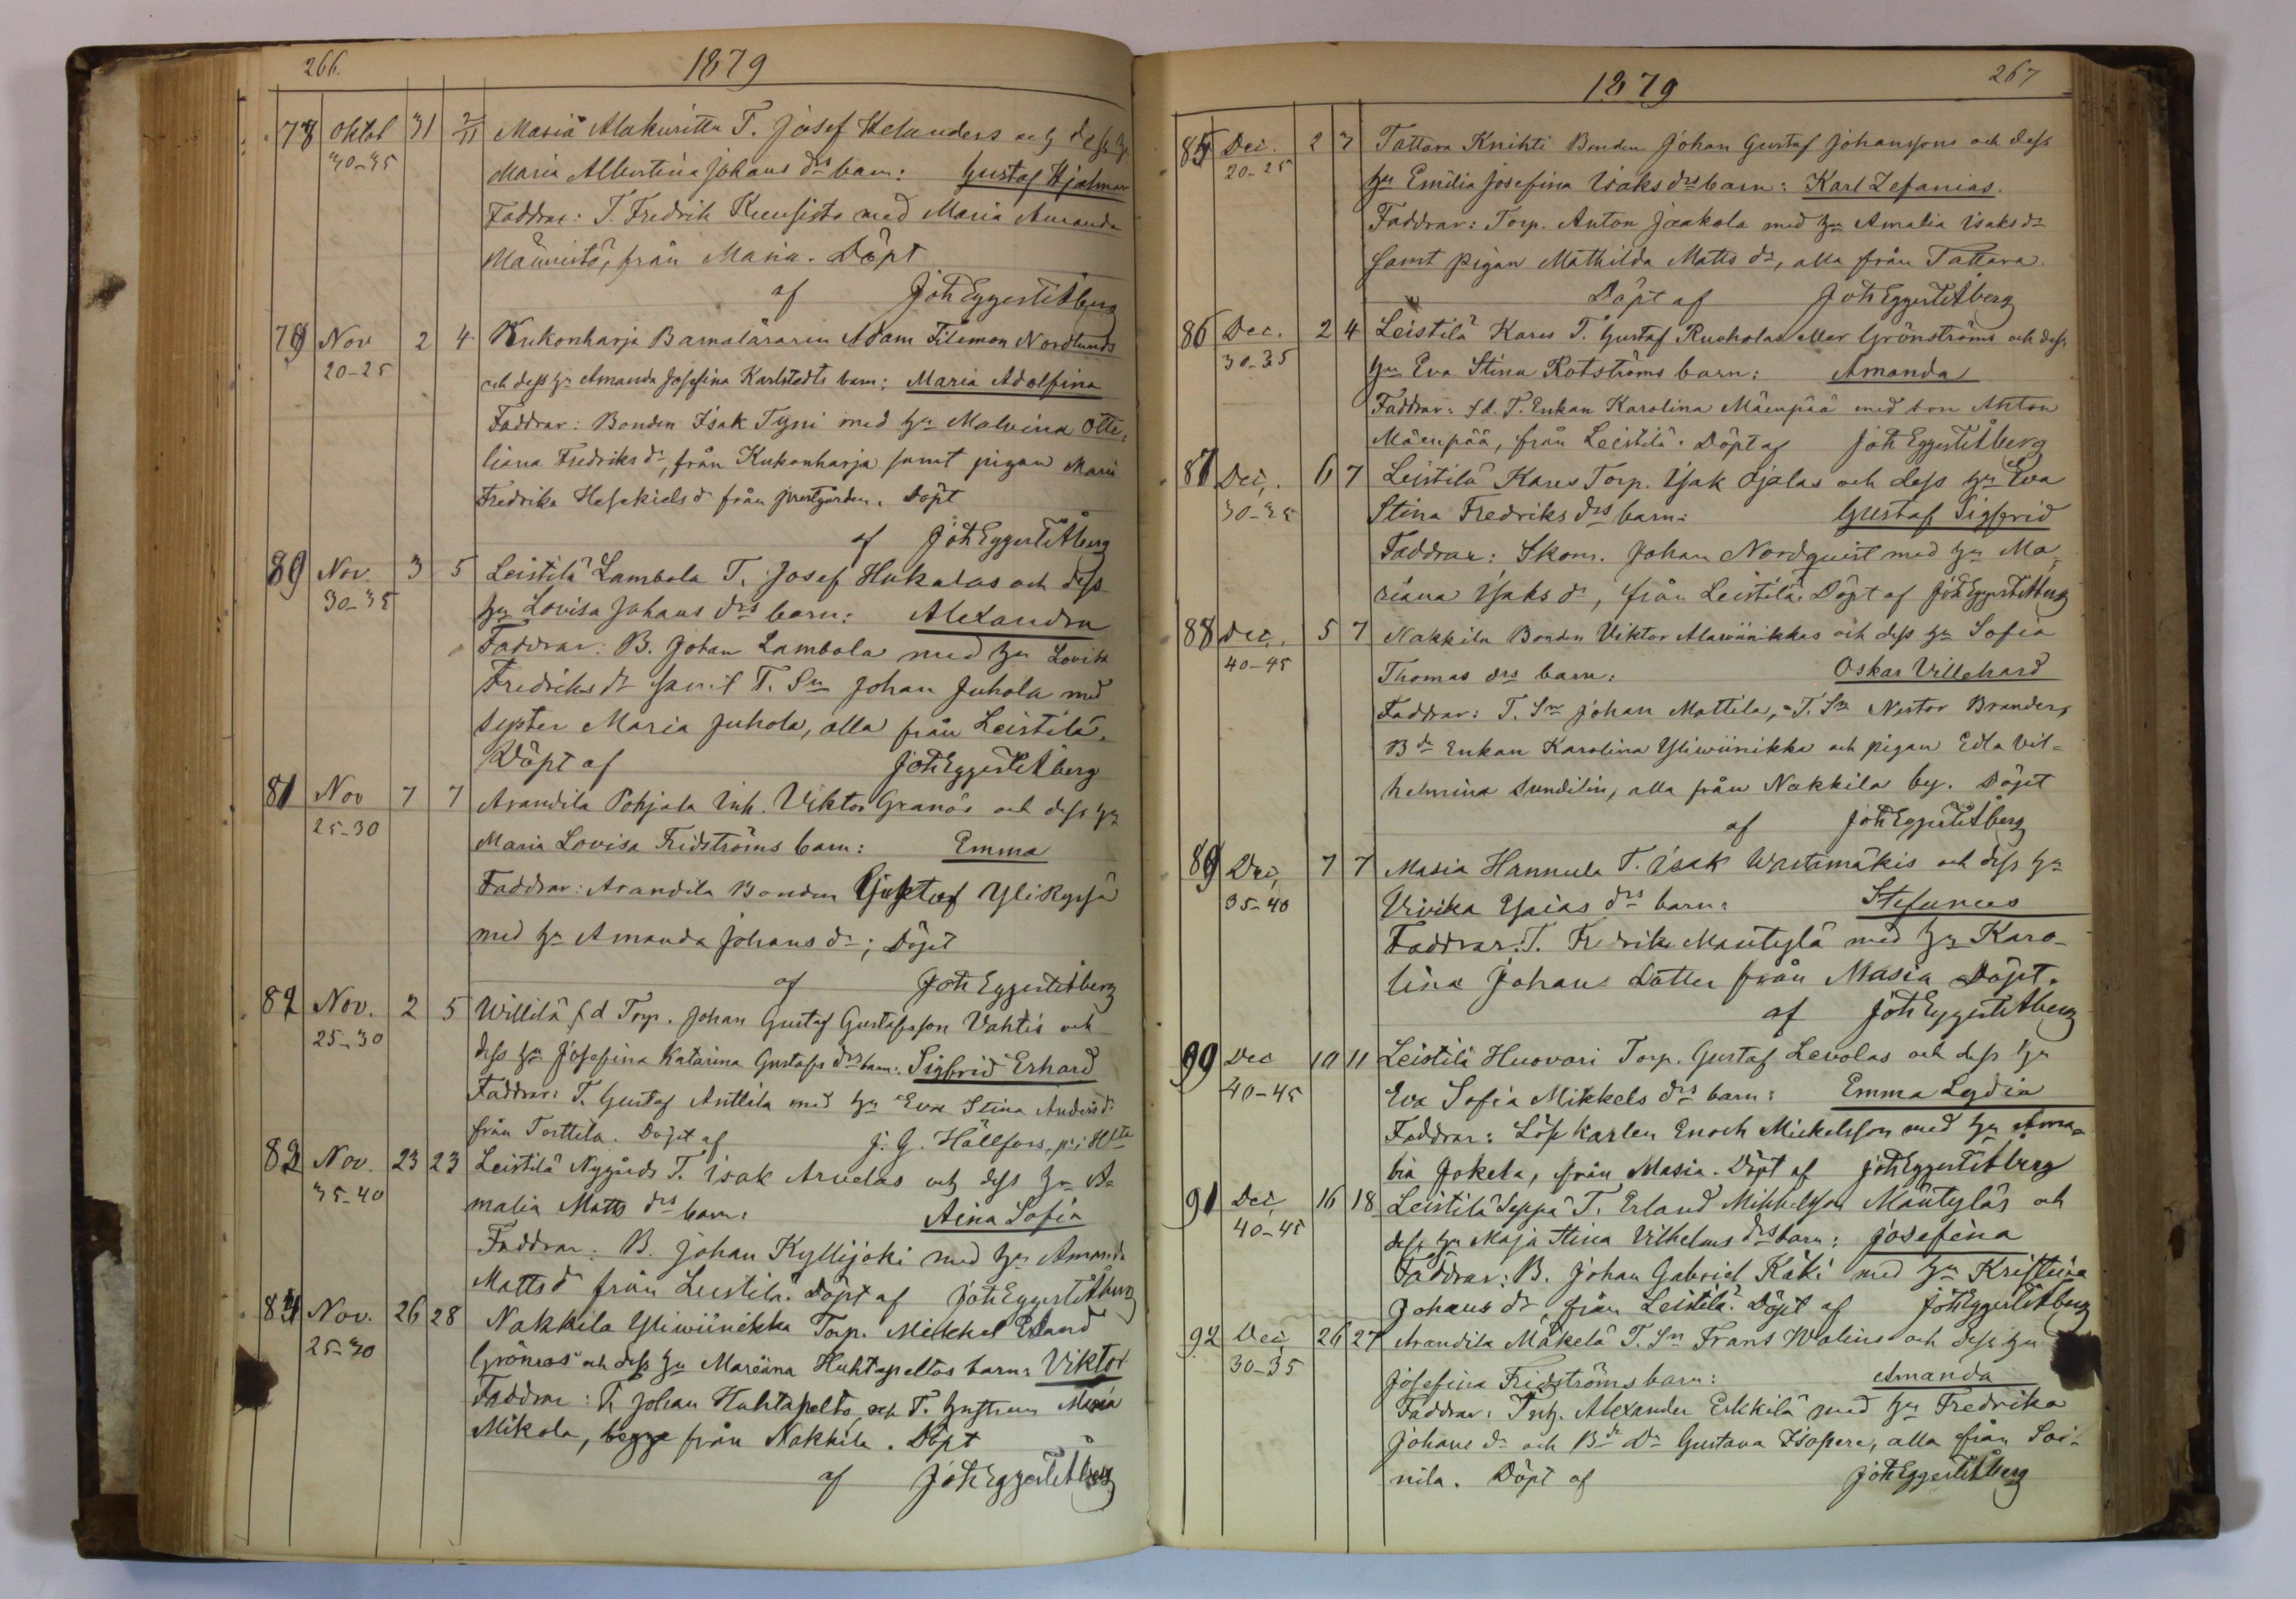 266.
1879
78 Oktob 31 2/11 Masia Alakuritta T. Josef Helanders och dess hu
30-35 Maria Albertina Johans drs barn: Gustaf Hjalmar
Faddrar: T. Fredrik Kuusisto med Maria Amanda
Männistö, från Masia. Döpt
af Joh Eggert Åberg
79 Nov 2 4 Kukonharja Barnaläraren Adam Filemon Nordlunds
20-25 och dess hu Amanda Josefina Karlstedts barn: Maria Adolfina
Faddrar: Bonden Isak Tyni med hu Malvina Otte-
liana Fredriks dr, från Kukonharja samt pigan Maria
Fredrika Hesekiels dr från prestgården. Döpt
af Joh Eggert Åberg
80 Nov. 3 5 Leistilä Lambola T. Josef Hukalas och dess
30-35 hu Lovisa Johans drs barn: Alexandra
Faddrar: B. Johan Lambola med hu Lovisa
Fredriks dr samt T. Sn Johan Juhola med
syster Maria Juhola, alla från Leistilä.
Döpt af Joh Eggert Åberg
81 Nov 7 7 Arandila Pohjala Inh. Viktor Granös och dess hu
25-30 Maria Lovisa Fridströms barn: Emma
Faddrar: Arandila Bonden Gustaf Ylikyssä
med hu Amanda Johans dr; Döpt
af Joh Eggert Åberg
82 Nov. 2 5 Willilä f d Torp. Johan Gustaf Gustafsson Vahtis och
25-30 dess hu Josefina Katarina Gustafs drs barn: Sigfrid Erhard
Faddrar: T. Gustaf Anttila med hu Eva Stina Anders dr
från Torttila. Döpt af J. G. Hällfors, p. i H
83 Nov. 23 23 Leistilä Nygårds T. Isak Arvelas och dess hu A-
35-40 malia Matts drs barn: Aina Sofia
Faddrar: B. Johan Kyllijoki med hu Amanda
Matts dr från Leistilä. Döpt af Joh Eggert Åberg
84 Nov. 26 28 Nakkila Yliwiinikka Torp. Mikkel Erland
25-30 Grönroos och dess hu Mariana Huhtapeltos barn: Viktor
Faddrar: T. Johan Huhtapelto, och T. hustrun Maria
Mikola, begge från Nakkila. Döpt
af Joh Eggert Åberg
1879
267
85 Dec. 2 3 Tattara Knihti Bonden Johan Gustaf Johanssons och dess
20-25 hu Emilia Josefina Isaks drs barn: Karl Zefanias.
Faddrar: Torp. Anton Jaakola med hu Amalia Isaks dr
samt pigan Mathilda Matts dr, alla från Tattara.
Döpt af Joh Eggert Åberg
86 Dec. 2 4 Leistilä Kares T. Gustaf Ruoholas eller Grönströms och dess
30-35 hu Eva Stina Rotströms barn: Amanda
Faddrar: f d. T. Enkan Karolina Mäenpää med son Anton
Mäenpää, från Leistilä. Döpt af Joh Eggert Åberg
87 Dec. 6 7 Leistilä Kares Torp. Isak Ojalas och dess hu Eva
30-35 Stina Fredriks drs barn: Gustaf Sigfrid
Faddrar: Skom. Johan Nordquist med hu Ma-
riana Isaks dr, från Leistilä. Döpt af Joh Eggert Åberg
88 Dec. 5 7 Nakkila Bonden Viktor Alawiinikkas och dess hu Sofia
40-45 Thomas drs barn: Oskar Villehard
Faddrar: T. Sn Johan Mattila, T. Sn Nestor Brander,
B de Enkan Karolina Yliwiinikka och pigan Edla Vil-
helmina Sundelin, alla från Nakkila by. Döpt
af Joh Eggert Åberg
89 Dec. 7 7 Masia Hannula T. Isak Wartamäkis och dess hu
35-40 Vivika Esaias drs barn: Stefanus
Faddrar: T. Fredrik Mäntylä med hu Karo-
lina Johans Dotter från Masia Döpt.
af Joh Eggert Åberg
90 Dec 10 11 Leistilä Huovari Torp. Gustaf Levolas och dess hu
40-45 Eva Sofia Mikkels drs barn: Emma Lydia
Faddrar: Löskarlen Enoch Mickelsson med hu Ama-
lia Jokela, från Masia. Döpt af Joh Eggert Åberg
91 Dec. 16 18 Leistilä Seppä T. Erland Mikkelsson Mäntyläs och
40-45 dess hu Maja Stina Vilhelms drs barn: Josefina
Faddrar: B. Johan Gabriel Käki med hu Kristina
Johans dr, från Leistilä. Döpt af Joh Eggert Åberg
92 Dec. 26 27 Arandila Mäkelä T. Sn Frans Walins och dess hu
30-35 Josefina Fridströms barn: Amanda
Faddrar: Inh. Alexander Erkkilä med hu Fredrika
Johans dr och Bde Dr Gustava Isopere, alla från Soi-
nila. Döpt af Joh Eggert Åberg